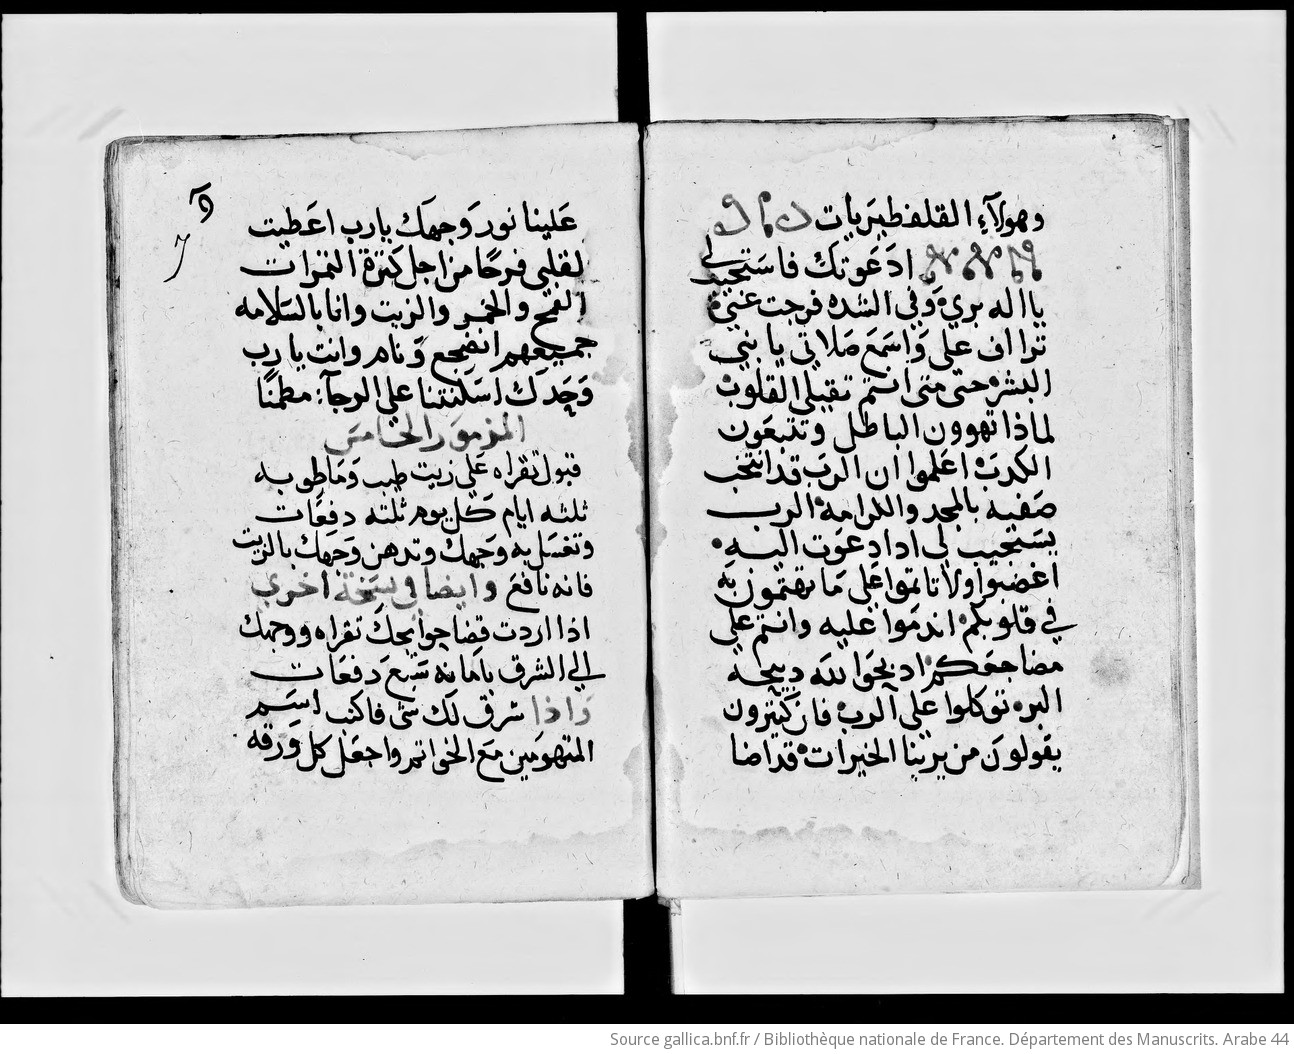 وهولاء القلفطيريات
ادعوتك فاستجيب لي
يا اله بري وفي الشده فرجت عني
تراف علي واسمع صلاتي يا بني
البشر حتي متي انتم ثقيلي القلوب
لماذا تهوون الباطل وتتبعون
الكدب اعلموا ان الرب قد انتخب
صفيه بالمجد والكرامه الرب
يستجيب لي اذا دعوت اليه
اغضبوا ولا تاثموا علي ما تهتمون به
في قلوبكم اندموا عليه وانتم علي
مضاجعكم ادبحوا لله دبيحه
البر توكلوا علي الرب فان كثيرون
يقولون من يرينا الخيرات قد اضا
٩
7
علينا نور وجهك يا رب اعطيت
لقلبي فرحا من اجل كثرة الثمرات
القمح والخمر والزيت وانا بالسلامه
جميعهم انضجع ونام وانت يا رب
وحدك اسكنتنا علي الرجاء مطمنا
المزمور الخامس
قبول تقراه علي زيت طيب وما طوبه
ثلثه ايام كل يوم ثلثه دفعات
وتغسل به وجهك وتدهن وجهك بالزيت
فانه نافع وايضا في نسخة اخري
اذا اردت قضا حوايجك تقراه ووجهك
الي الشرق بامانه سبع دفعات
واذا سرق لك شي فاكتب اسم
المتهومين مع الخواتم واجعل كل ورقه
Source gallica.bnf.fr / Bibliothèque nationale de France. Département des Manuscrits. Arabe 44